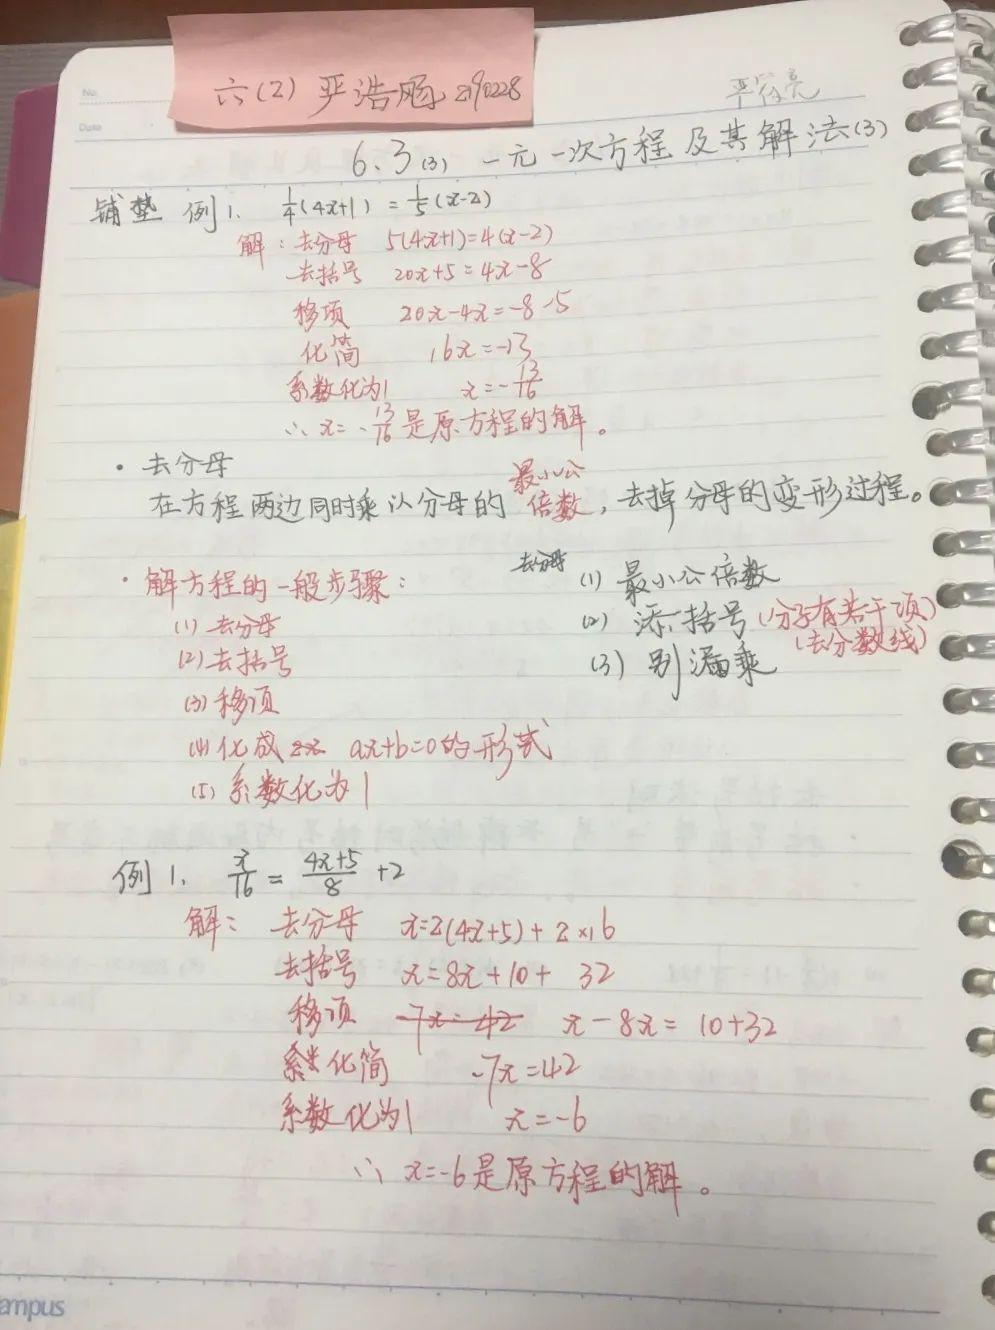 六(2) 严浩飏 2190228
No.
Date
6.3(3) 一元一次方程及其解法(3)
铺垫 例1. 1/4(4x+1) = 1/5(x-2)
解: 去分母 5(4x+1)=4(x-2)
去括号 20x+5=4x-8
移项 20x-4x=-8-5
化简 16x=-13
系数化为1 x=-13/16
∴ x=-13/16是原方程的解。
· 去分母
在方程两边同时乘以分母的最小公倍数,去掉分母的变形过程。
· 解方程的一般步骤:
(1) 去分母
(2) 去括号
(3) 移项
(4) 化成 ax+b=0的形式
(5) 系数化为1
去分母 (1) 最小公倍数
(2) 添括号(分子有若干项)
(去分数线)
(3) 别漏乘
例1. x/16 = (4x+5)/8 +2
解: 去分母 x=2(4x+5)+2×16
去括号 x=8x+10+ 32
移项 -7x=42 x-8x= 10+32
化简 -7x=42
系数化为1 x=-6
∴ x=-6是原方程的解。
ampus